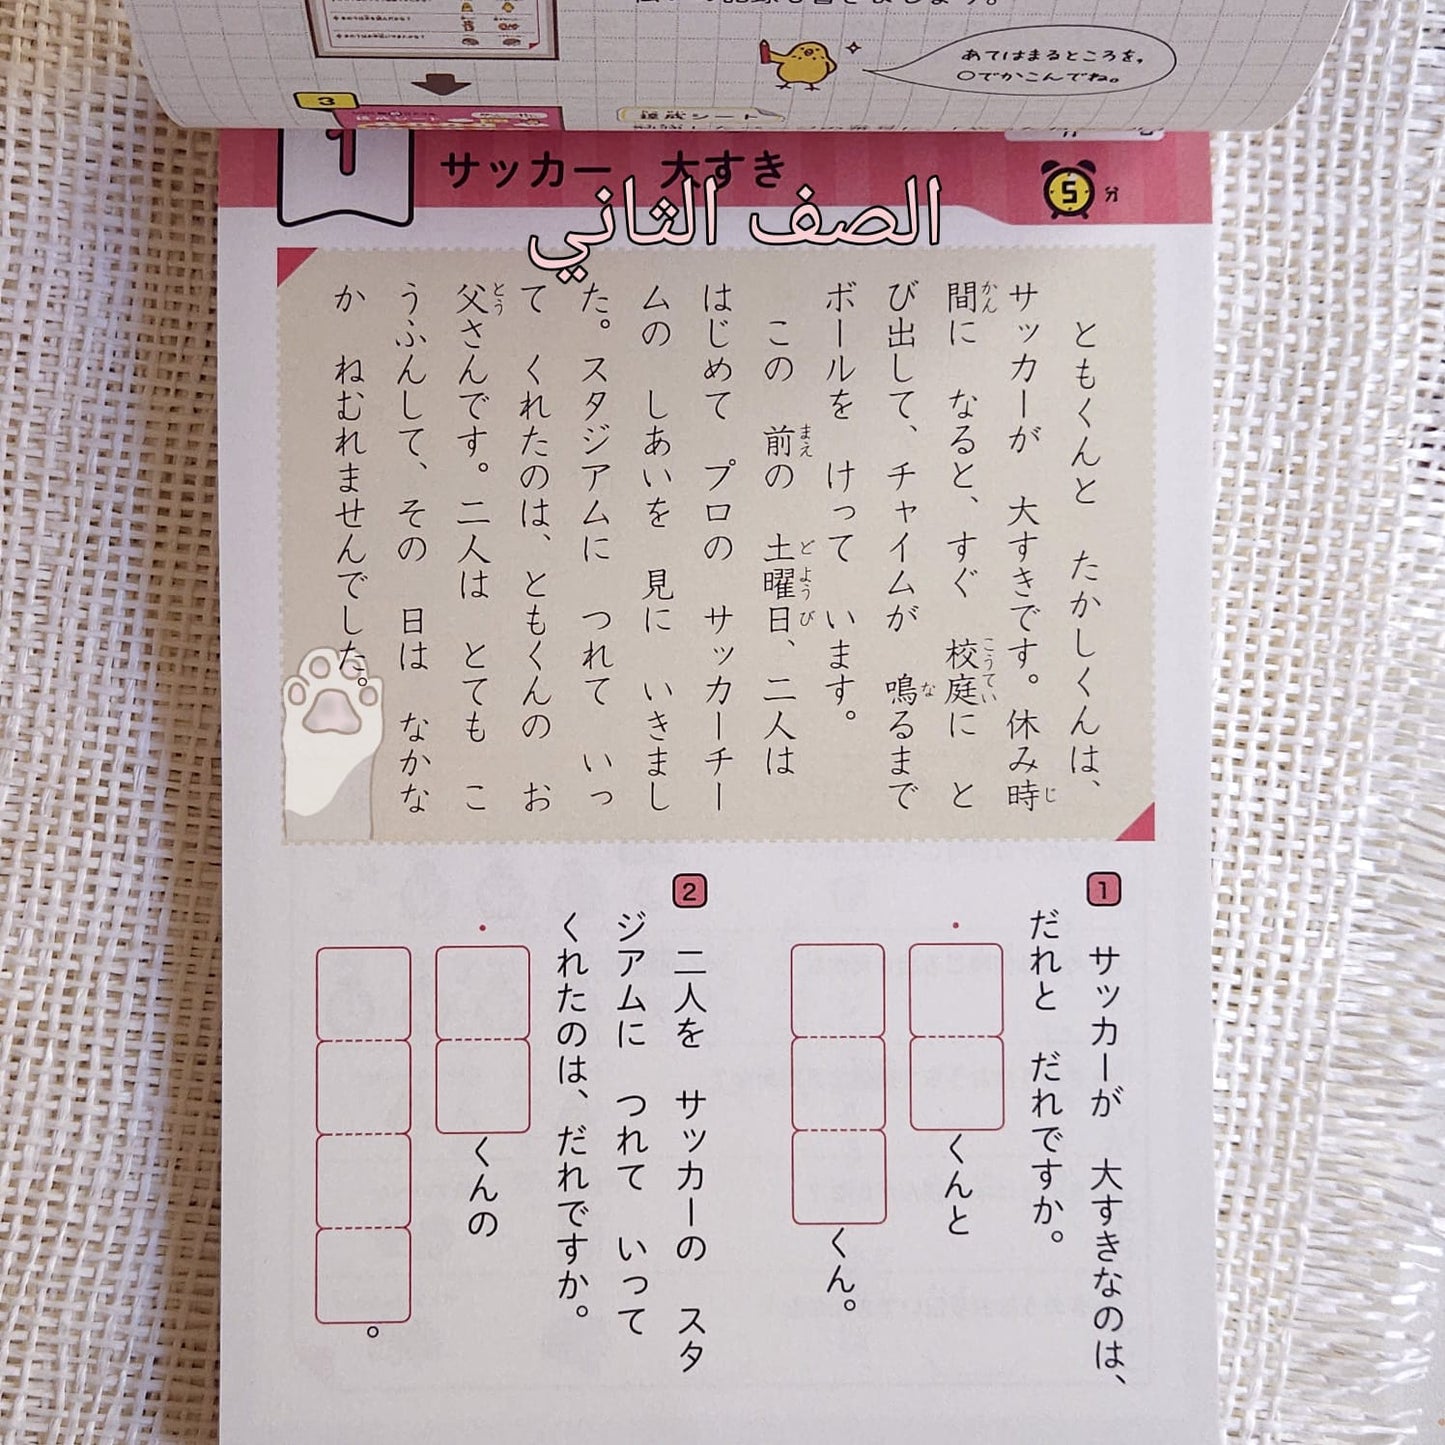 あてはまるところを、
○でかこんでね。
3
達成シート
1
サッカー　大すき
5分
الصف الثاني
ともくんと　たかしくんは、
サッカーが　大すきです。休み時
間に　なると、すぐ　校庭に　と
び出して、チャイムが　鳴るまで
ボールを　けって　います。
この　前の　土曜日、二人は
はじめて　プロの　サッカーチー
ムの　しあいを　見に　いきまし
た。スタジアムに　つれて　いっ
て　くれたのは、ともくんの　お
父さんです。二人は　とても　こ
うふんして、その　日は　なかな
か　ねむれませんでした。
じ
かん
こうてい
な
まえ
どようび
とう
1
サッカーが　大すきなのは、
だれと　だれですか。
くんと
くん。
2
二人を　サッカーの　スタ
ジアムに　つれて　いって
くれたのは、だれですか。
くんの
。